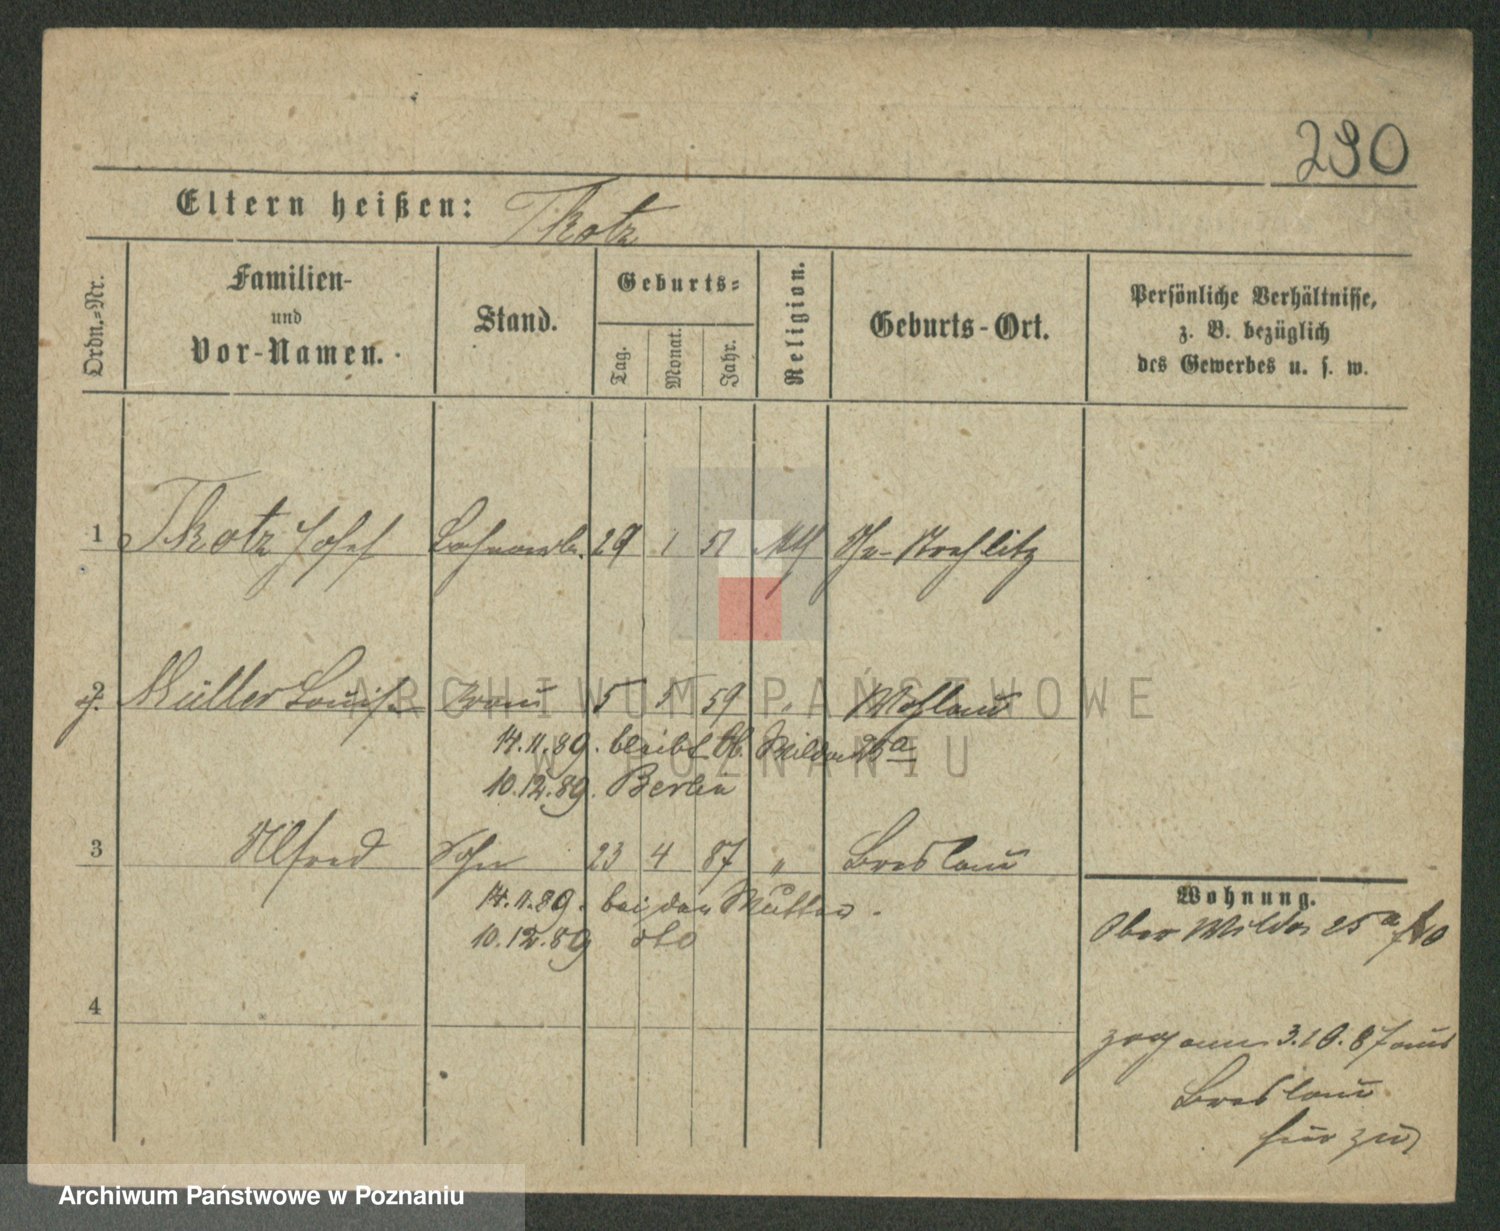 290
Eltern heißen: Tkotz
Ordn.-Nr.
Familien-
und
Vor-Namen.
Stand.
Geburts-
Tag.
Monat.
Jahr.
Religion.
Geburts-Ort.
Persönliche Verhältnisse,
z. B. bezüglich
des Gewerbes u. s. w.
1 Tkotz Josef 29 1 51 Strehlitz
2 Müller Louise Frau 5 5 59 " Wohlau
14.11.89. bleibt Ob. Wilda 25a
10.12.89. Berlin
3 Alfred Sohn 23 4 87 " Breslau
14.11.89. bei der Mutter.
10.12.89 dto
4
Wohnung.
Ober Wilda 25a
zog am 3.10.87 aus
Breslau
hier zu
ARCHIWUM PAŃSTWOWE
W POZNANIU
Archiwum Państwowe w Poznaniu